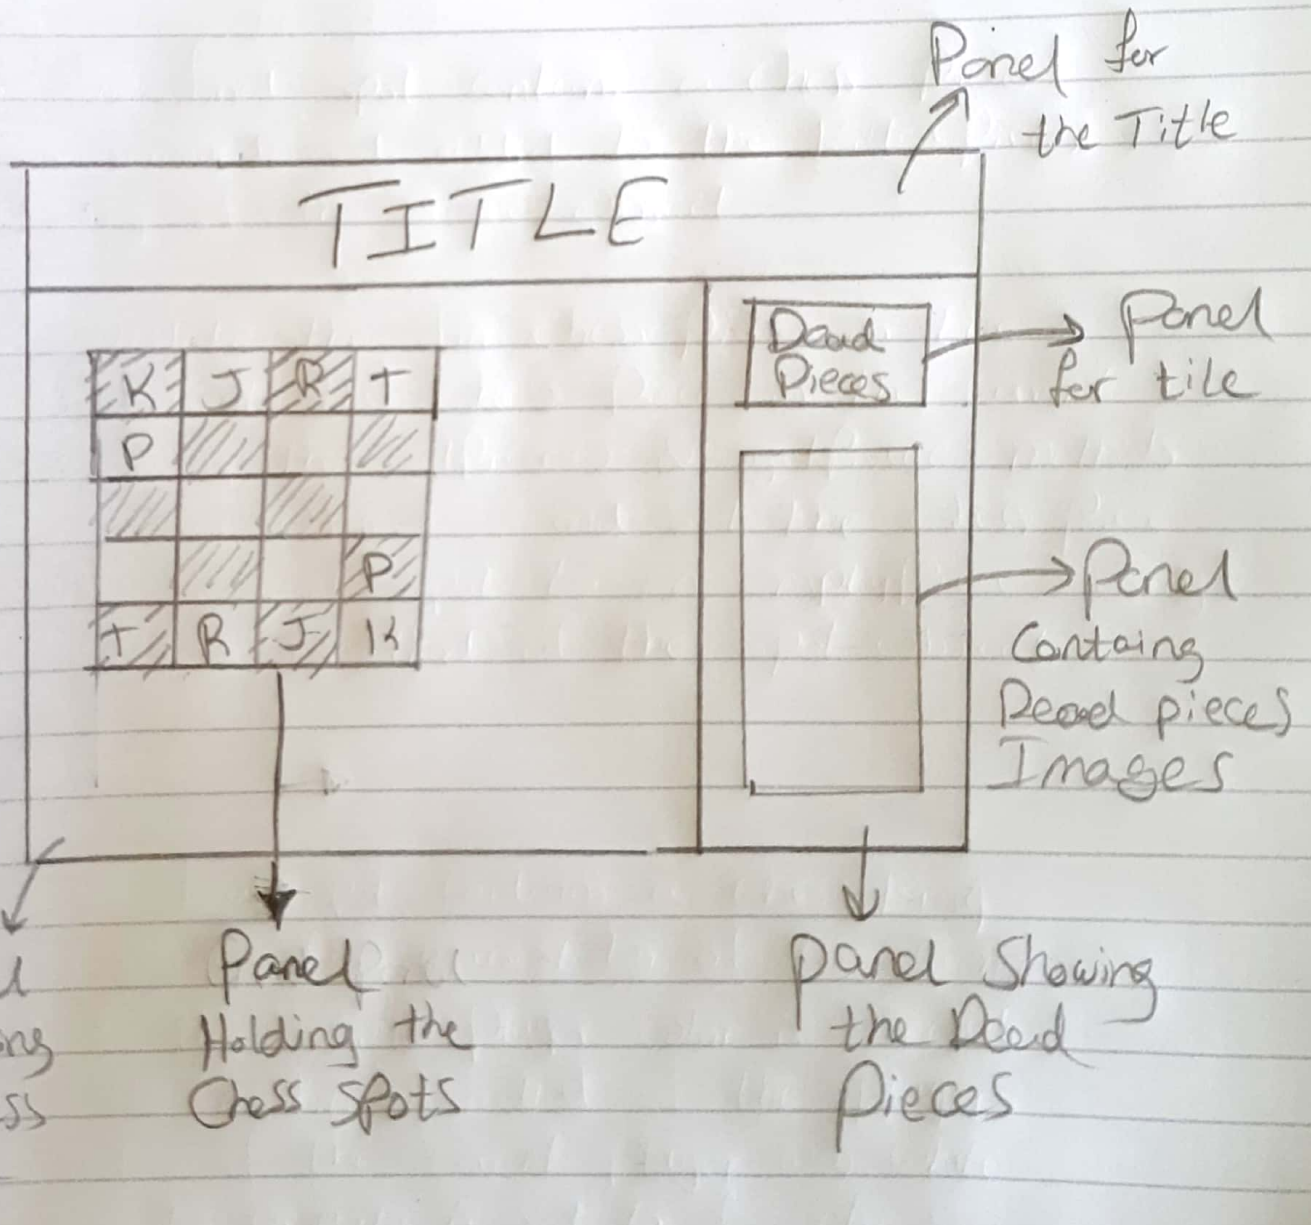 Panel for
the Title
TITLE
Dead
Pieces
Panel
for tile
K J R T
P
P
T R J K
Panel
Containg
Dead pieces
Images
Panel
Holding the
Chess Spots
panel Showing
the Dead
Pieces
ng
ss